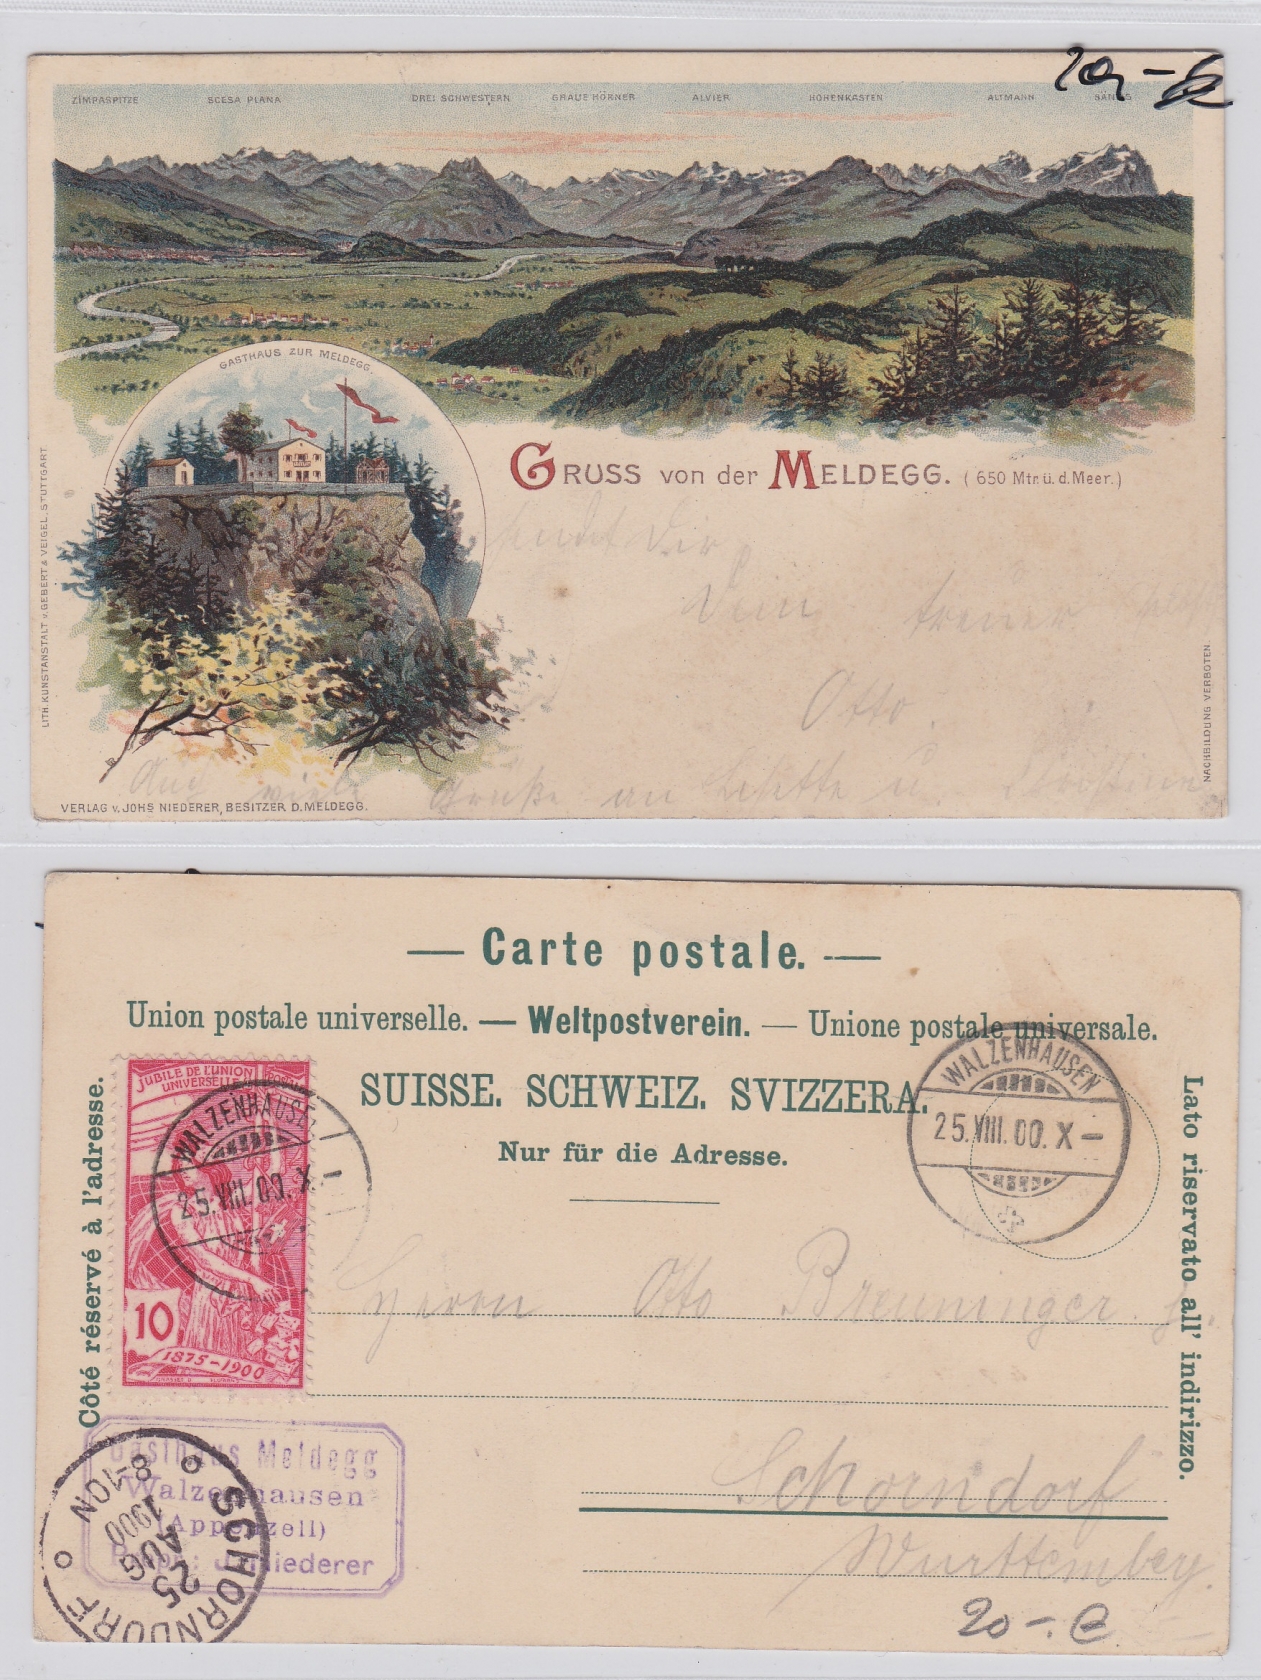 20,-
ZIMPASPITZE SCESA PLANA DREI SCHWESTERN GRAUE HÖRNER ALVIER HOHENKASTEN ALTMANN SÄNTIS
GASTHAUS ZUR MELDEGG.
GRUSS von der MELDEGG. (650 Mtr. ü. d. Meer.)
sendet Dir
Dein treuer
Otto.
Auch viele Grüße an u.
LITH. KUNSTANSTALT v. GEBERT & VEIGEL, STUTTGART
NACHBILDUNG VERBOTEN.
VERLAG v. JOHS NIEDERER, BESITZER D. MELDEGG.
— Carte postale. —
Union postale universelle. — Weltpostverein. — Unione postale universale.
SUISSE. SCHWEIZ. SVIZZERA.
Nur für die Adresse.
Côté réservé à l'adresse.
Lato riservato all' indirizzo.
JUBILÉ DE L'UNION
POSTALE
UNIVERSELLE
10
1875-1900
WALZENHAUSEN
25.VIII.00.X–
WALZENHAUSEN
25.VIII.00.X–
Herrn Otto Breuninger
Schorndorf
Württemberg.
Gasthaus Meldegg
Walzenhausen
(Appenzell)
Propr.: J. Niederer
SCHORNDORF
25
AUG
1900
8-10N
20-. €